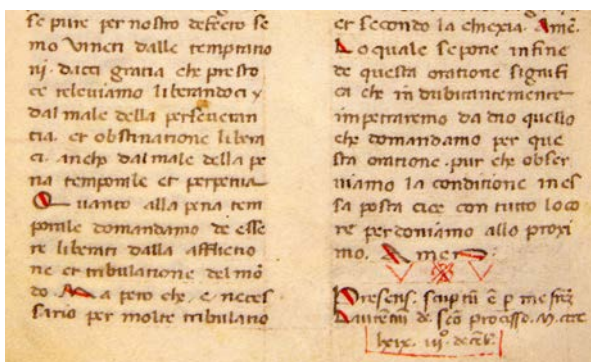 se pure per nostro defecto se
mo vinti dalle temptatio
ni. dacci gratia che presto
ce releviamo liberandoci
dal male della perseveran
tia. et obstinatione libera
ci. anche dal male della pe
na temporale et perpetua
Quanto alla pena tem
porale domandamo de esse
re liberati dalla afflictio
ne et tribulatione del mō
do. Ma pero che. e. neces
sario per molte tribulatio
et secondo la chiexia. Amē.
Lo quale se pone in fine
de questa oratione signifi
ca che indubitantemente
impetraremo da dio quello
che domandamo per que
sta oratione. pur che obser
viamo la conditione in es
sa posta cioe con tutto lo co
re perdoniamo allo proxi
mo. Amen
Presens. scriptū ē p me frēz
Laurentiū de. scō processo. M. cccc
lxix. iiiº. decēb.